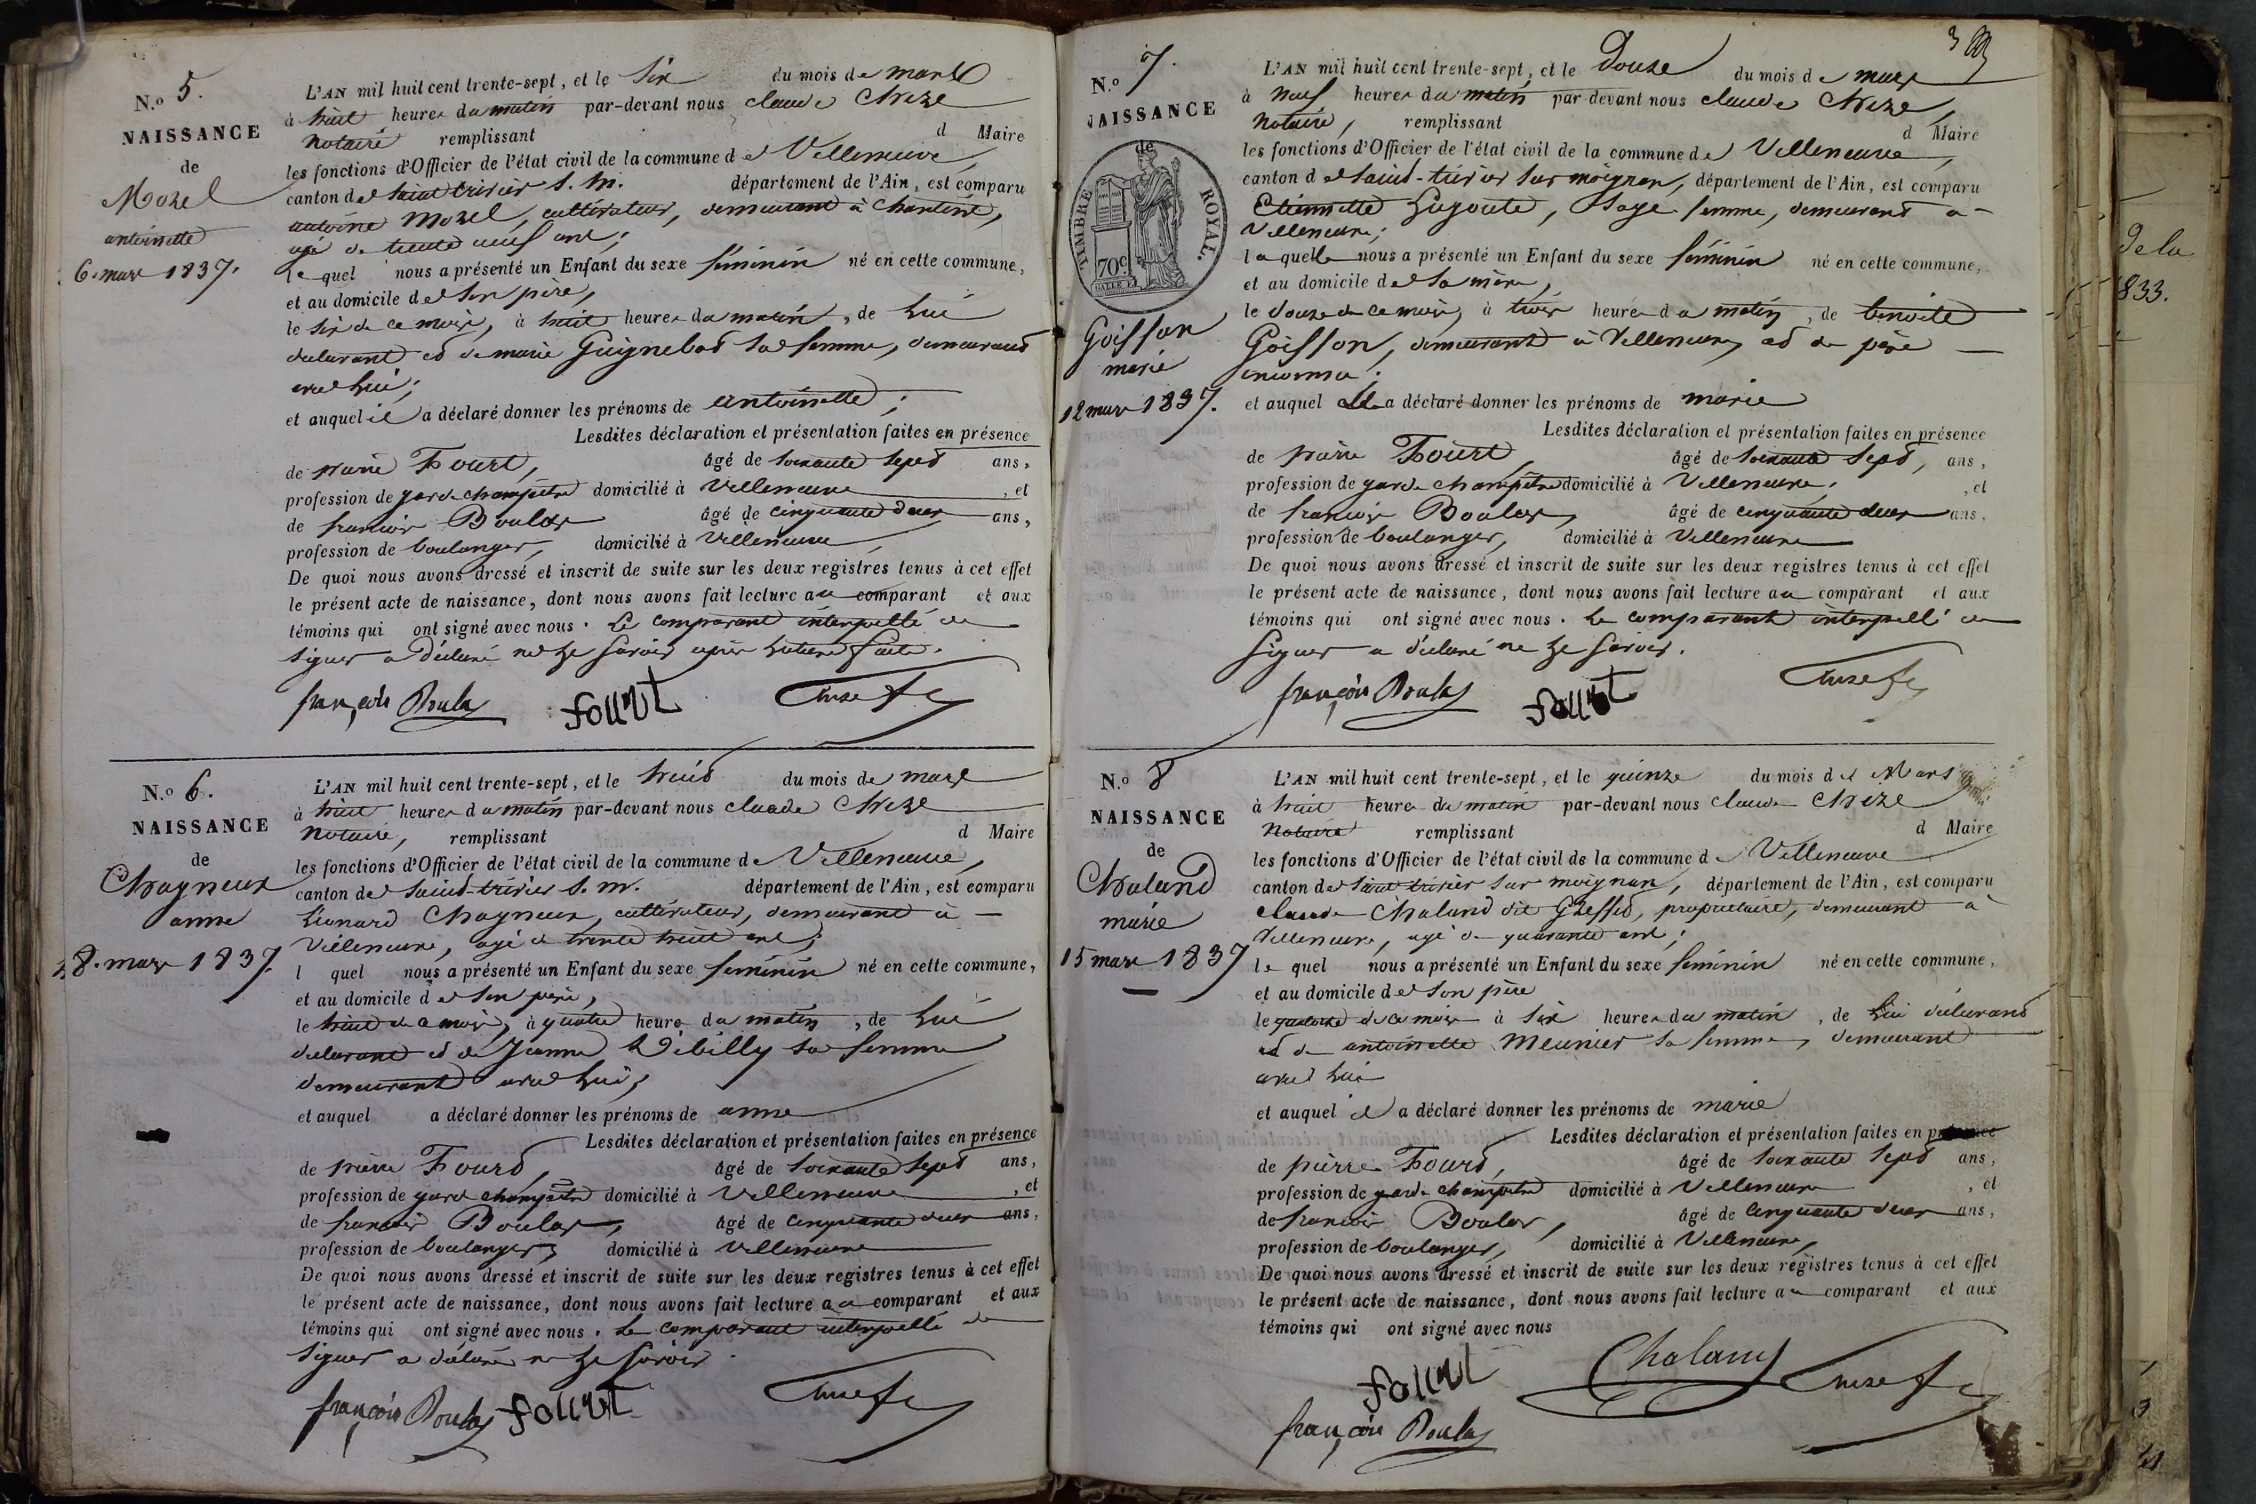 N.o 5.
NAISSANCE
de
Mozel
antoinette
6. mars 1837.
L'AN mil huit cent trente-sept, et le Six du mois de mars
à huit heures du matin par-devant nous claude Chize
Notaire remplissant d Maire
les fonctions d'Officier de l'état civil de la commune de Villeneuve
canton de Saint trivier S. M. département de l'Ain, est comparu
antoine Mozel, cultivateur, demeurant à Chanteins,
agé de trente neuf ans;
Lequel nous a présenté un Enfant du sexe féminin né en cette commune,
et au domicile de Son père,
le Six de ce mois, à huit heures du matin, de Lui
déclarant et de marie Guignebod Sa femme, demeurand
avec Lui;
et auquel il a déclaré donner les prénoms de antoinette;
Lesdites déclaration et présentation faites en présence
de pierre Fourt, âgé de Soixante Sept ans,
profession de garde champêtre domicilié à Villeneuve, et
de françois Boulas âgé de cinquante deux ans,
profession de boulanger, domicilié à Villeneuve
De quoi nous avons dressé et inscrit de suite sur les deux registres tenus à cet effet
le présent acte de naissance, dont nous avons fait lecture au comparant et aux
témoins qui ont signé avec nous. Le comparant interpellé de
Signer a déclaré ne le Savoir après Lecture faite.
françois Boulas fourt Chize
N.o 6.
NAISSANCE
de
Chagneux
anne
8. mars 1837.
L'AN mil huit cent trente-sept, et le huit du mois de mars
à huit heures du matin par-devant nous claude Chize
Notaire, remplissant d Maire
les fonctions d'Officier de l'état civil de la commune de Villeneuve,
canton de Saint-trivier S. M. département de l'Ain, est comparu
Léonard Chagneux, cultivateur, demeurant à
Villeneuve, agé de trente huit ans;
l quel nous a présenté un Enfant du sexe féminin né en cette commune,
et au domicile de Son père,
le huit de ce mois, à quatre heures du matin, de Lui
déclarant et de Jeanne Débilly sa femme
demeurant avec Lui;
et auquel a déclaré donner les prénoms de anne
Lesdites déclaration et présentation faites en présence
de pierre Fourt, âgé de Soixante Sept ans,
profession de garde champêtre domicilié à Villeneuve, et
de françois Boulas, âgé de cinquante deux ans,
profession de boulanger, domicilié à Villeneuve
De quoi nous avons dressé et inscrit de suite sur les deux registres tenus à cet effet
le présent acte de naissance, dont nous avons fait lecture au comparant et aux
témoins qui ont signé avec nous. Le comparant interpellé de
Signer a déclaré ne le Savoir
françois Boulas fourt Chize
3
N.o 7.
NAISSANCE
de
TIMBRE ROYAL.
70c
Goiffon
marie
12 mars 1837.
L'AN mil huit cent trente-sept, et le Douze du mois de mars
à Neuf heures du matin par-devant nous claude Chize,
Notaire, remplissant d Maire
les fonctions d'Officier de l'état civil de la commune de Villeneuve,
canton de Saint-trivier Sur moignan, département de l'Ain, est comparu
Etiennette Lagoute, Sage femme, demeurant à
Villeneuve;
laquelle nous a présenté un Enfant du sexe féminin né en cette commune,
et au domicile de Sa mère,
le douze de ce mois, à trois heures du matin, de benoite
Goiffon, demeurant à Villeneuve, et de père
inconnu;
et auquel Ele a déclaré donner les prénoms de marie
Lesdites déclaration et présentation faites en présence
de pierre Fourt, âgé de Soixante Sept, ans,
profession de garde champêtre domicilié à Villeneuve, et
de françois Boulas, âgé de cinquante deux ans,
profession de boulanger, domicilié à Villeneuve
De quoi nous avons dressé et inscrit de suite sur les deux registres tenus à cet effet
le présent acte de naissance, dont nous avons fait lecture au comparant et aux
témoins qui ont signé avec nous. Le comparant interpellé de
Signer a déclaré ne le Savoir.
françois Boulas fourt Chize
N.o 8
NAISSANCE
de
Chaland
marie
15 mars 1837
L'AN mil huit cent trente-sept, et le quinze du mois de Mars
à huit heures du matin par-devant nous claude Chize
Notaire remplissant d Maire
les fonctions d'Officier de l'état civil de la commune de Villeneuve
canton de Saint trivier Sur moignan, département de l'Ain, est comparu
claude Chaland dit Greffet, propriétaire, demeurant à
Villeneuve, agé de quarante ans;
le quel nous a présenté un Enfant du sexe féminin né en cette commune,
et au domicile de Son père
le quatorze de ce mois à Six heures du matin, de Lui déclarant
et de antoinette Meunier Sa femme, demeurant
avec Lui
et auquel il a déclaré donner les prénoms de marie
Lesdites déclaration et présentation faites en présence
de pierre Fourt, âgé de Soixante Sept ans,
profession de garde champêtre domicilié à Villeneuve, et
de françois Boulas, âgé de cinquante deux ans,
profession de boulanger, domicilié à Villeneuve,
De quoi nous avons dressé et inscrit de suite sur les deux registres tenus à cet effet
le présent acte de naissance, dont nous avons fait lecture au comparant et aux
témoins qui ont signé avec nous
fourt Chaland Chize
françois Boulas
De la
1833.